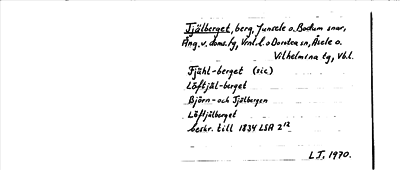 Tjälberget, berg, Junsele o. Bodum snar,
Ång. v. doms.tg, o Dorotea sn, Åsele o.
Vilhelmina tg, Vbl.
Fjähl-berget (sic)
Löftjäl-berget
Björn- och Tjälbergen
Löftjälberget
beskr. till 1834 LSA 2¹²
LJ, 1970.